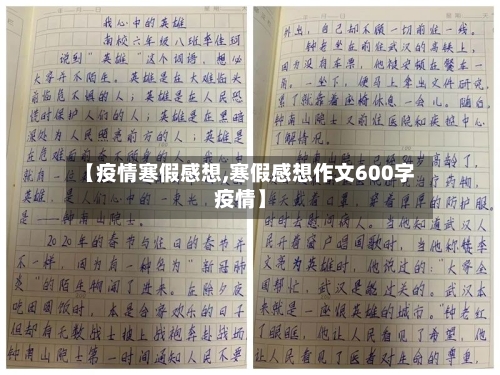 我心中的英雄
南校六年级八班李佳珂
说到“英雄”这个词语，想必
大家并不陌生。英雄是在大难临头
前临危不惧的人；英雄是在人民恐
慌时保护人们的人；英雄是在黑暗
深处为人民照亮前方的人；英雄是
在危难面前不顾自身的
就自
英雄，是人们心中的一束光，
是——钟南山院士。
2020年的春节与往日的春节并
不一样，因为有一种名为“新冠肺
炎”的陌生物闯了进来。在除夕夜
吃团圆饭时，本是合家欢乐的日子
但却有无数战士披上战袍奔赴战场，
钟南山院士第一时间通知人民不要
外出，自己却不顾一切前往一线。
钟老坐在前往武汉的高铁上，
因为没有车票，他被安顿在餐车一
角。一坐下，便马上拿出文件研究，
累了就靠着座椅休息一会儿。随后，
钟南山院士又前往医院和疾控中心
了解情况。
高龄了，
疗药物，
每天戴着口罩，穿着厚厚的防护服。
时时去慰问病人。当他知道武汉人
民开着窗户唱国歌时，当他称赞李
文亮为英雄时，他说过的：“大家全
国帮忙，武汉是能过关的。武汉本
来就是一座很英雄的城市。”钟老红
了眼眶，他让人民看见了希望，他
让人民看见了医者对生命的尊重，
【疫情寒假感想,寒假感想作文600字
疫情】